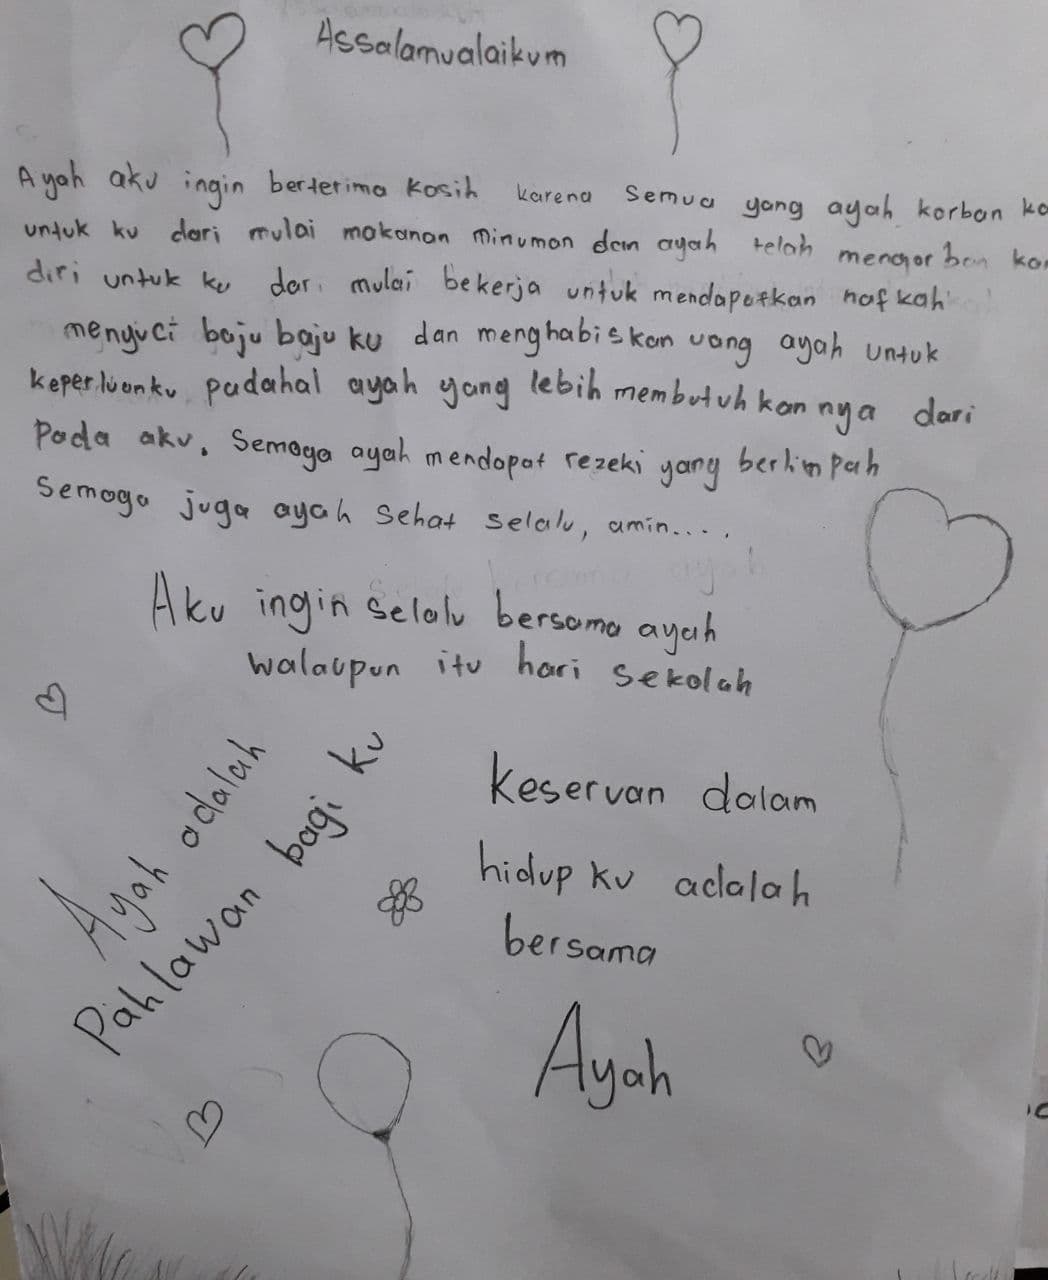 Assalamualaikum
Ayah aku ingin berterima kasih karena semua yang ayah korban ka
untuk ku dari mulai makanan minuman dan ayah telah mengorban kan
diri untuk ku dari mulai bekerja untuk mendapatkan nafkah
menyuci baju baju ku dan menghabiskan uang ayah untuk
keperluanku padahal ayah yang lebih membutuhkannya dari
pada aku. Semoga ayah mendapat rezeki yang berlimpah
Semoga juga ayah sehat selalu, amin....
Aku ingin selalu bersama ayah
walaupun itu hari sekolah
Ayah adalah
Pahlawan bagi ku
keseruan dalam
hidup ku adalah
bersama
Ayah